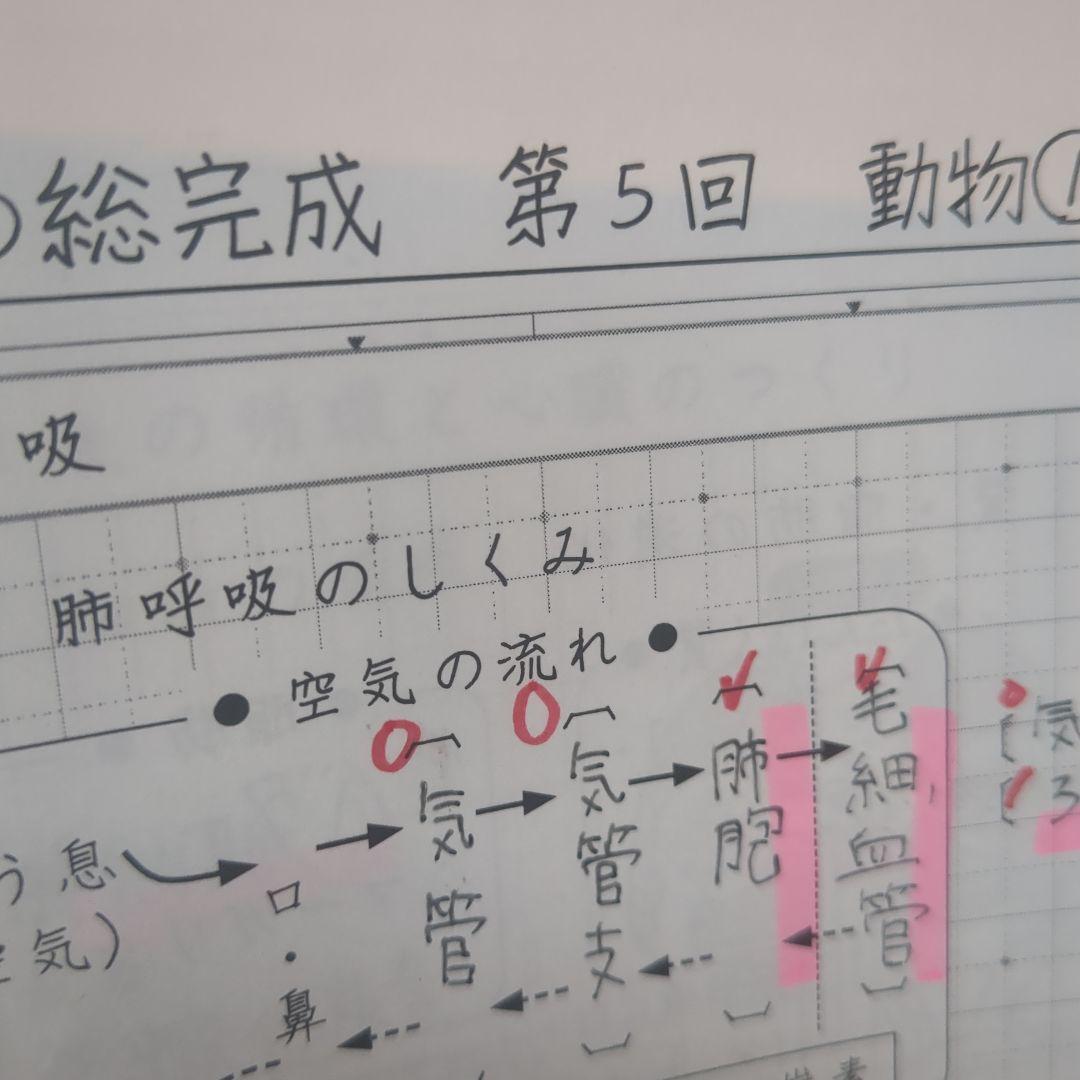 総完成 第5回 動物①
吸
肺呼吸のしくみ
● 空気の流れ ●
う息
空気)
口・鼻
〔気管〕
〔気管支〕
〔肺胞〕
〔毛細血管〕
〔気
〔ろ
炭素